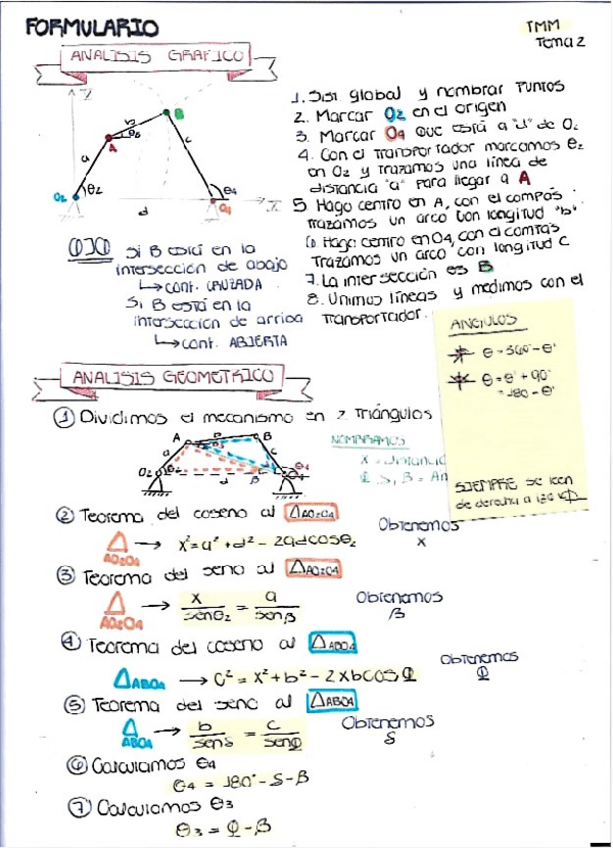 FORMULARIO
TMM
Tema 2
ANALISIS GRAFICO
1. Sist. global y nombrar puntos
2. Marcar O2 en el origen
3. Marcar O4 que está a "d" de O2
4. Con el transportador marcamos θ2
en O2 y trazamos una línea de
distancia "a" para llegar a A
5. Hago centro en A, con el compás
trazamos un arco con longitud "b"
6. Hago centro en O4, con el compás
trazamos un arco con longitud c
7. La intersección es B
8. Unimos líneas y medimos con el
transportador.
b
B
θ3
A
a
c
O2
θ2
θ4
d
O4
OJO
Si B está en la
intersección de abajo
↳ conf. CRUZADA
Si B está en la
intersección de arriba
↳ conf. ABIERTA
ANGULOS
θ = 360° - θ'
θ = θ' + 90°
= 180 - θ'
SIEMPRE se leen
de derecha a izq
ANALISIS GEOMETRICO
① Dividimos el mecanismo en 2 triángulos
A
B
a
c
O2
θ2
d
β
θ4
NOMBRAMOS
X = distancia
Φ, S, β =
② Teorema del coseno al △AO2O4
△AO2O4 → x² = a² + d² - 2adcosθ2
Obtenemos
x
③ Teorema del seno al △AO2O4
△AO2O4 → x/senθ2 = a/senβ
Obtenemos
β
④ Teorema del coseno al △ABO4
△ABO4 → c² = x² + b² - 2xbcosΦ
Obtenemos
Φ
⑤ Teorema del seno al △ABO4
△ABO4 → b/senS = c/senΦ
Obtenemos
S
⑥ Calculamos θ4
θ4 = 180° - S - β
⑦ Calculamos θ3
θ3 = Φ - β